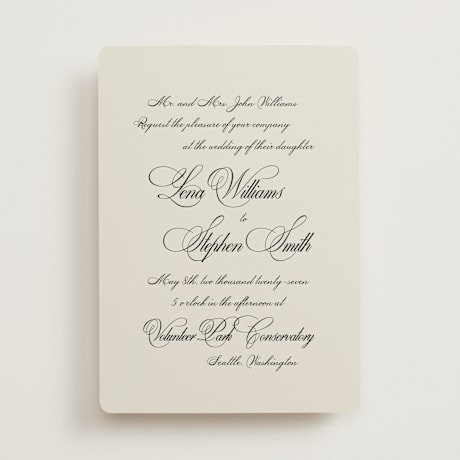 Mr. and Mrs. John Williams
Request the pleasure of your company
at the wedding of their daughter
Lena Williams
to
Stephen Smith
May 8th, two thousand twenty-seven
5 o'clock in the afternoon at
Volunteer Park Conservatory
Seattle, Washington